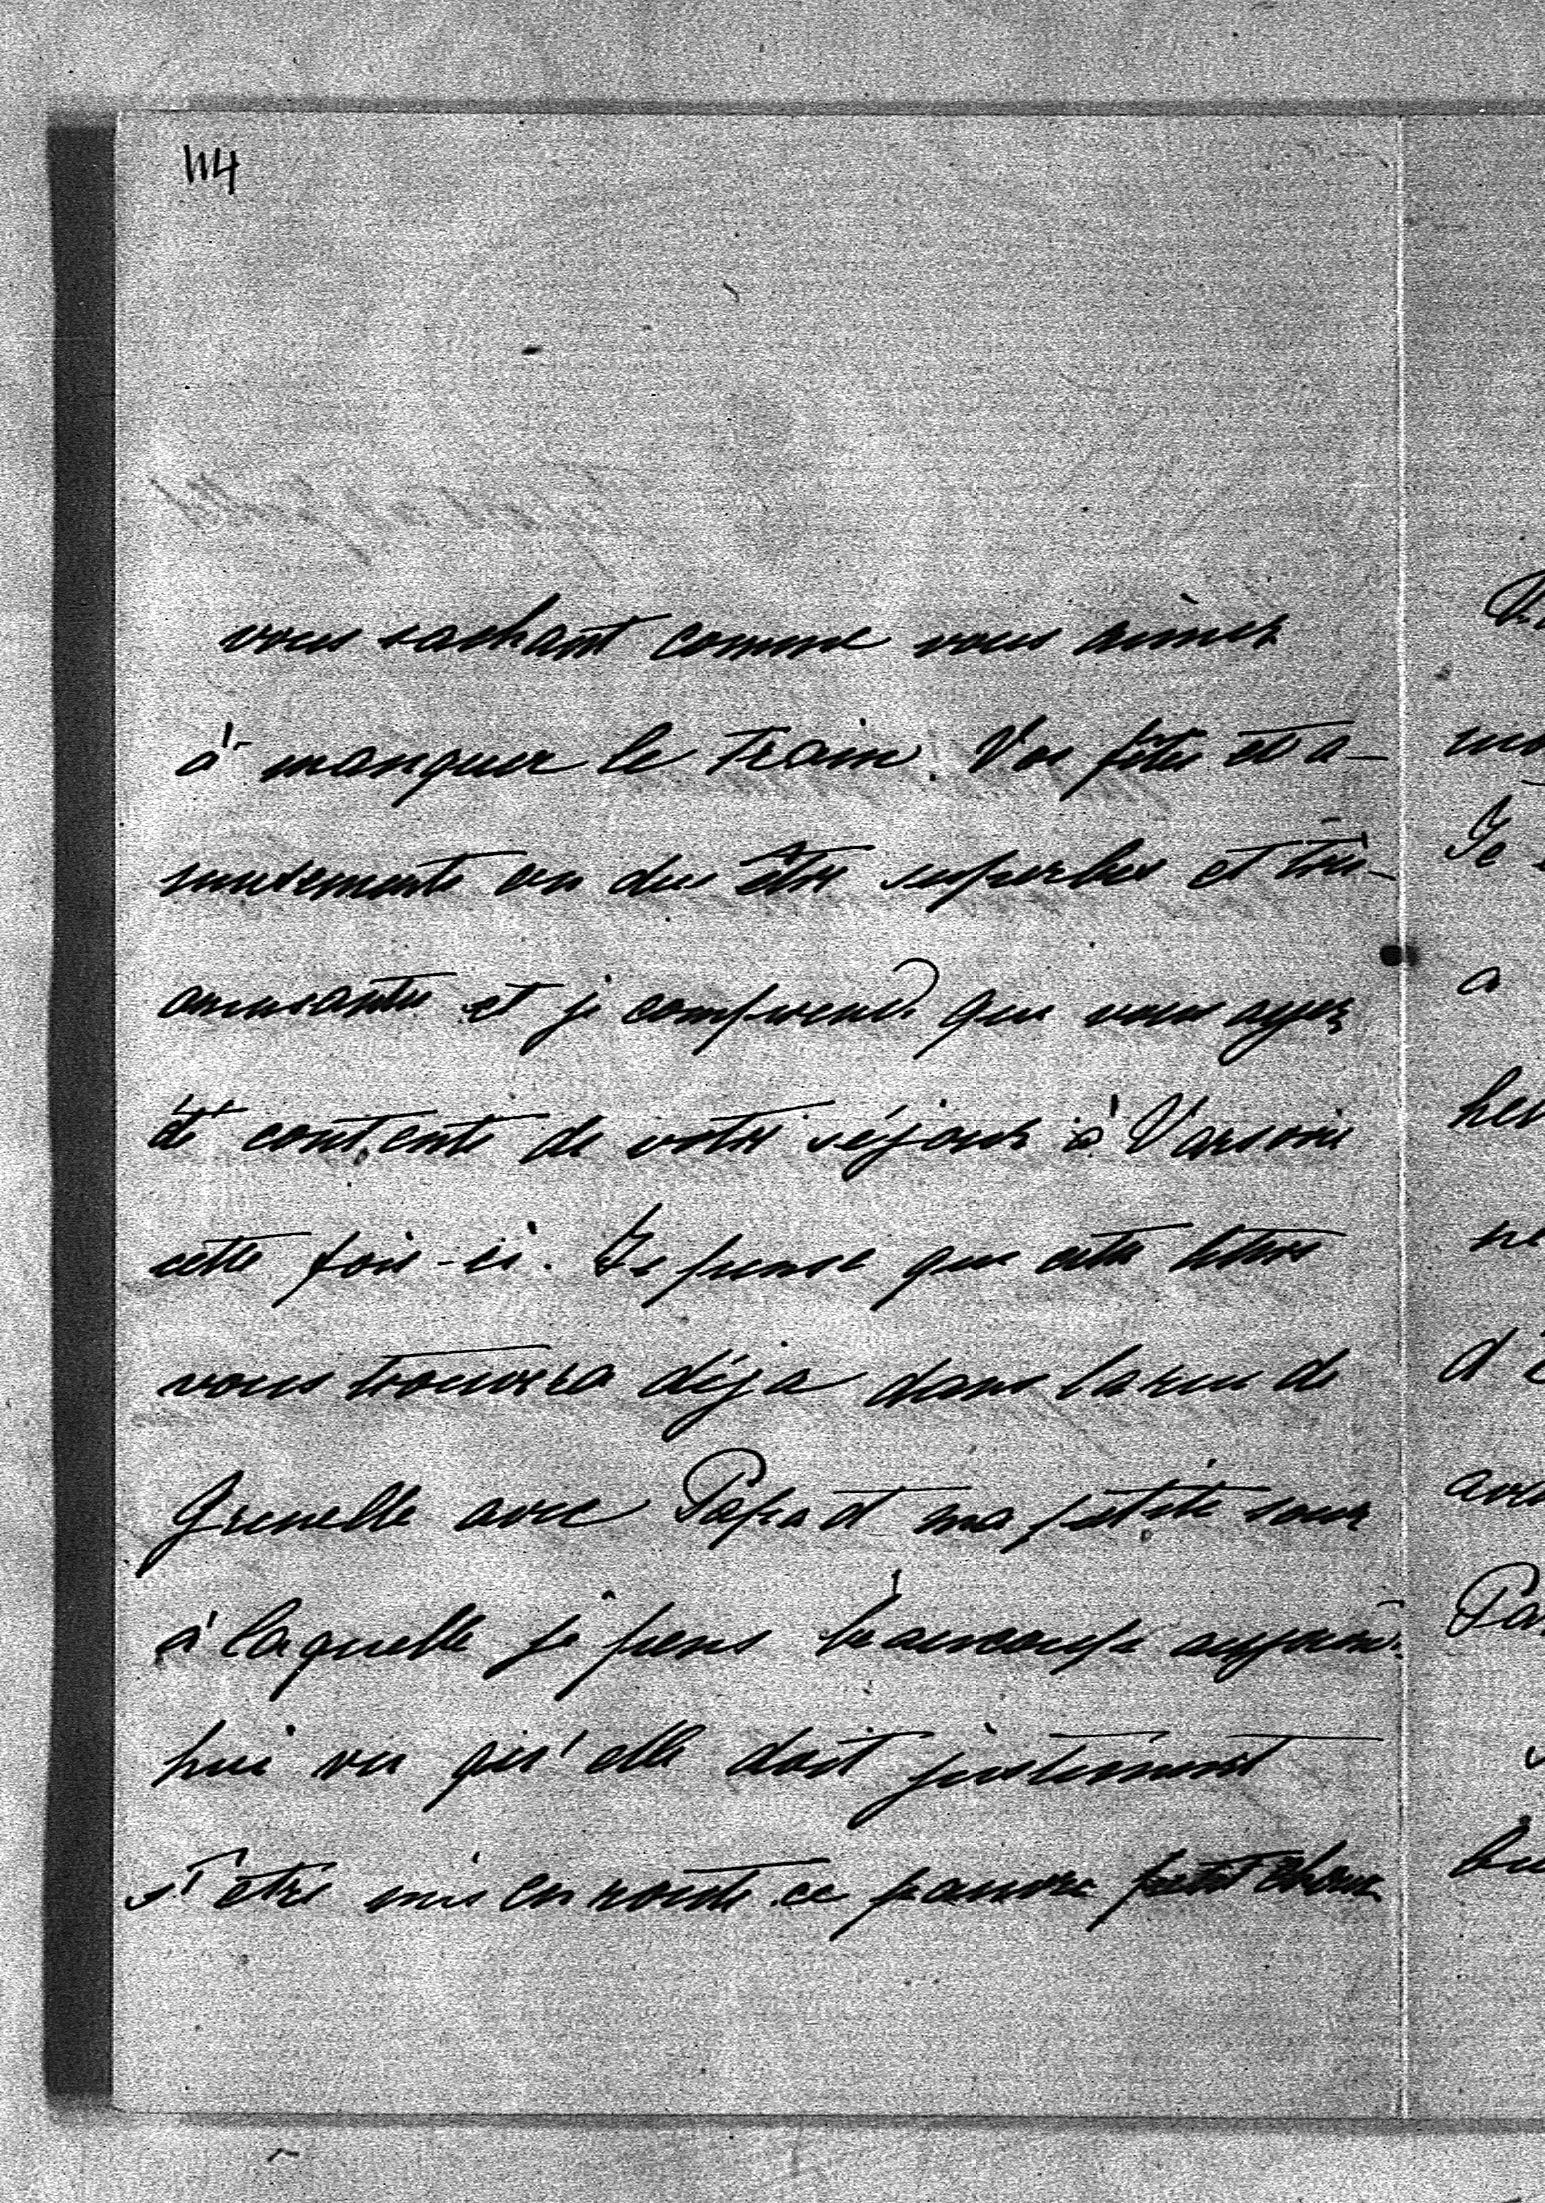 114
vous sachant comme vous aimez
à manquer le train. Vos fêtes et a-
musements on du être superbes et très-
amusantes et je comprends que vous ayez
été contente de votre séjour à Varsovie
cette fois-ci. Je pense que cette lettre
vous trouvera déja dans la rue de
Grenelle avec Papa et ma petite soeur
à laquelle je pens beaucoup aujourd'
hui vu qu'elle doit justement
s'être mis en route ce pauvre petit
Je
a